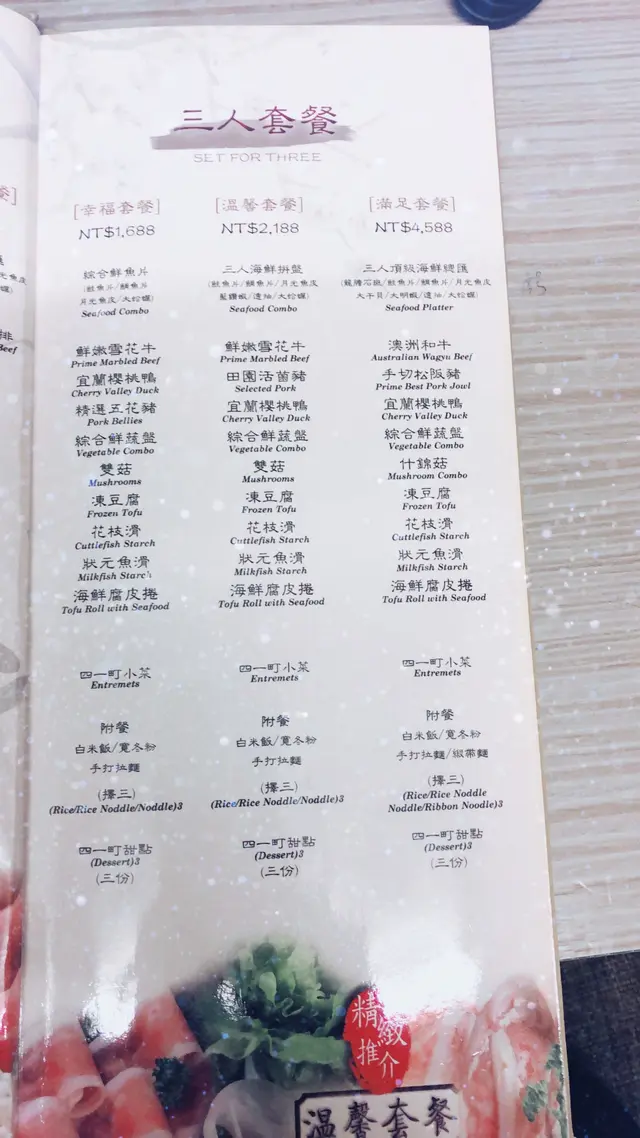 三人套餐
SET FOR THREE
[幸福套餐]
NT$1,688
綜合鮮魚片
(鮭魚片/鯛魚片/
月光魚皮/大蛤蠣)
Seafood Combo
鮮嫩雪花牛
Prime Marbled Beef
宜蘭櫻桃鴨
Cherry Valley Duck
精選五花豬
Pork Bellies
綜合鮮蔬盤
Vegetable Combo
雙菇
Mushrooms
凍豆腐
Frozen Tofu
花枝滑
Cuttlefish Starch
狀元魚滑
Milkfish Starch
海鮮腐皮捲
Tofu Roll with Seafood
四一町小菜
Entremets
附餐
白米飯/寬冬粉
手打拉麵
(擇三)
(Rice/Rice Noddle/Noddle)3
四一町甜點
(Dessert)3
(三份)
[溫馨套餐]
NT$2,188
三人海鮮拼盤
(鮭魚片/鯛魚片/月光魚皮
藍鑽蝦/透抽/大蛤蠣)
Seafood Combo
鮮嫩雪花牛
Prime Marbled Beef
田園活菌豬
Selected Pork
宜蘭櫻桃鴨
Cherry Valley Duck
綜合鮮蔬盤
Vegetable Combo
雙菇
Mushrooms
凍豆腐
Frozen Tofu
花枝滑
Cuttlefish Starch
狀元魚滑
Milkfish Starch
海鮮腐皮捲
Tofu Roll with Seafood
四一町小菜
Entremets
附餐
白米飯/寬冬粉
手打拉麵
(擇三)
(Rice/Rice Noddle/Noddle)3
四一町甜點
(Dessert)3
(三份)
[滿足套餐]
NT$4,588
三人頂級海鮮總匯
(龍膽石斑/鮭魚片/鯛魚片/月光魚皮
大干貝/大明蝦/透抽/大蛤蠣)
Seafood Platter
澳洲和牛
Australian Wagyu Beef
手切松阪豬
Prime Best Pork Jowl
宜蘭櫻桃鴨
Cherry Valley Duck
綜合鮮蔬盤
Vegetable Combo
什錦菇
Mushroom Combo
凍豆腐
Frozen Tofu
花枝滑
Cuttlefish Starch
狀元魚滑
Milkfish Starch
海鮮腐皮捲
Tofu Roll with Seafood
四一町小菜
Entremets
附餐
白米飯/寬冬粉
手打拉麵/緞帶麵
(擇三)
(Rice/Rice Noddle
Noddle/Ribbon Noodle)3
四一町甜點
(Dessert)3
(三份)
精緻
推介
溫馨套餐